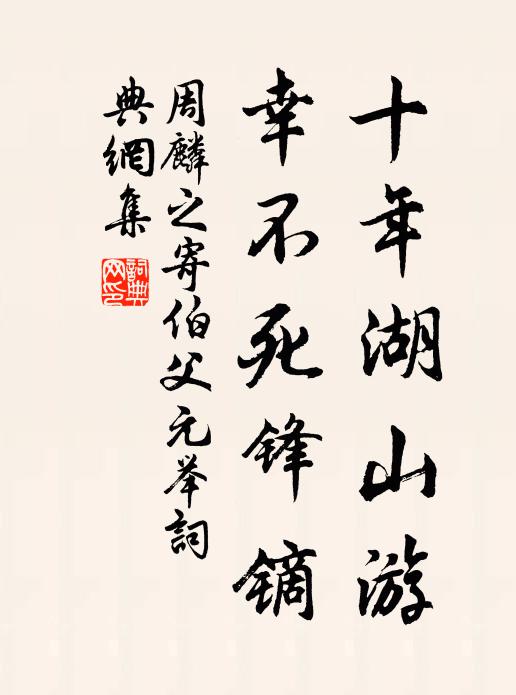 十年湖山游
幸不死锋镝
周麟之寄伯父元举词
典網集
詞典
网印